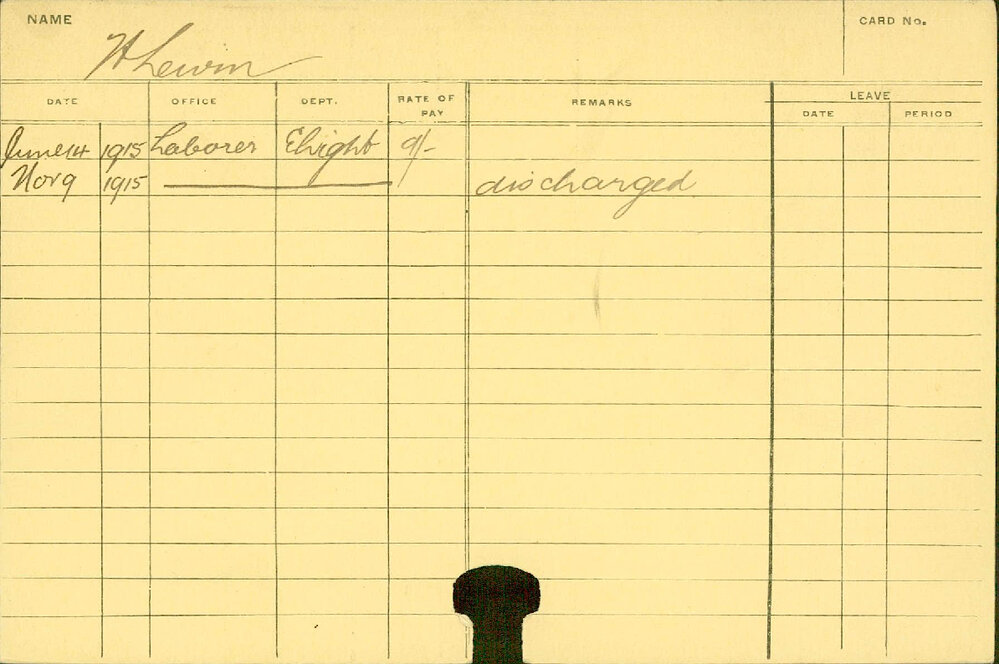 NAME
CARD No.
H Lewin
DATE OFFICE DEPT. RATE OF PAY REMARKS LEAVE
DATE PERIOD
June 14 1915 Laborer Elight 9/-
Nov 9 1915 discharged